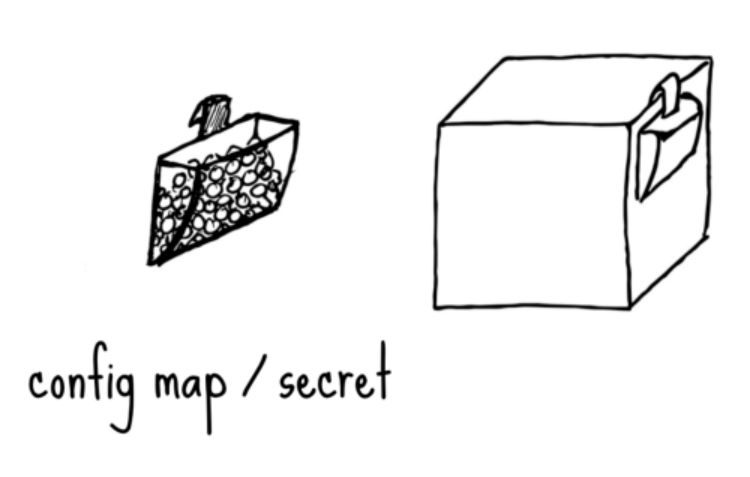 config map / secret